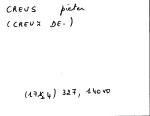 CREUS pieter
(CREUX DE.)
(1754) 327, 140 vo